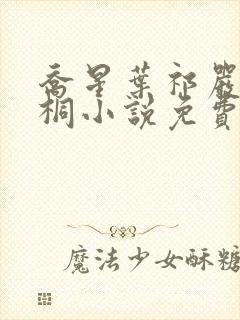 喬星葉祁嚴
桐小說免費
魔法少女酥糖